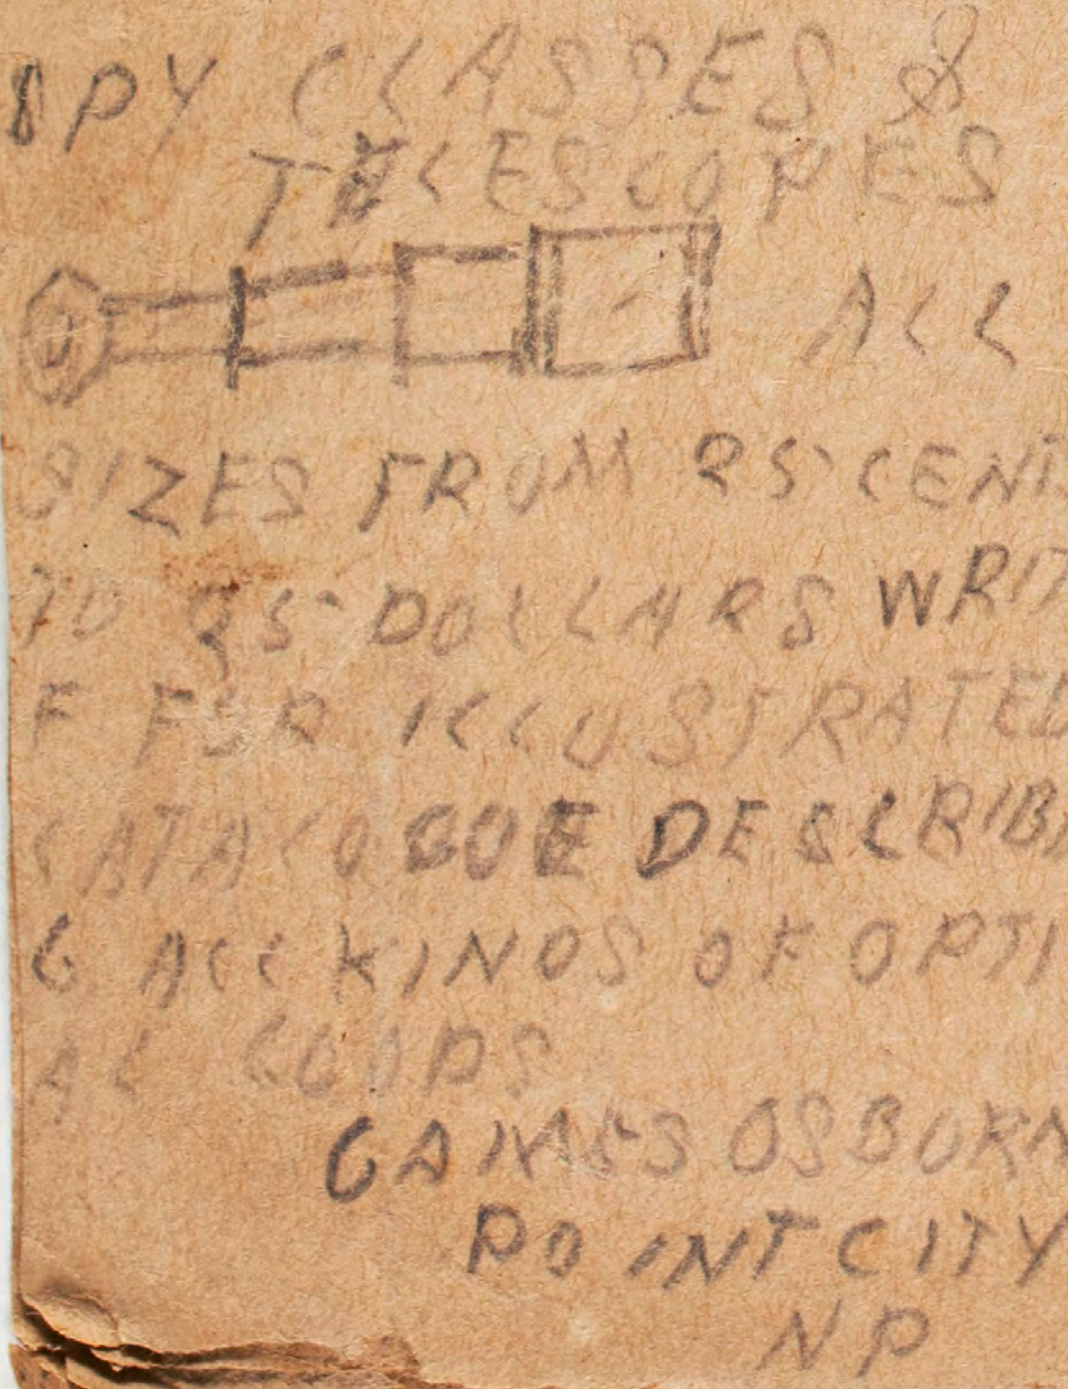 SPY GLASSES &
TELESCOPES
ALL
SIZES FROM 25 CENTS
TO 25 DOLLARS WRIT
E FOR ILLUSTRATED
CATALOGUE DESCRIBI
G ALL KINDS OF OPTI
AL GOODS
GAMES OSBORN
POINT CITY
NP